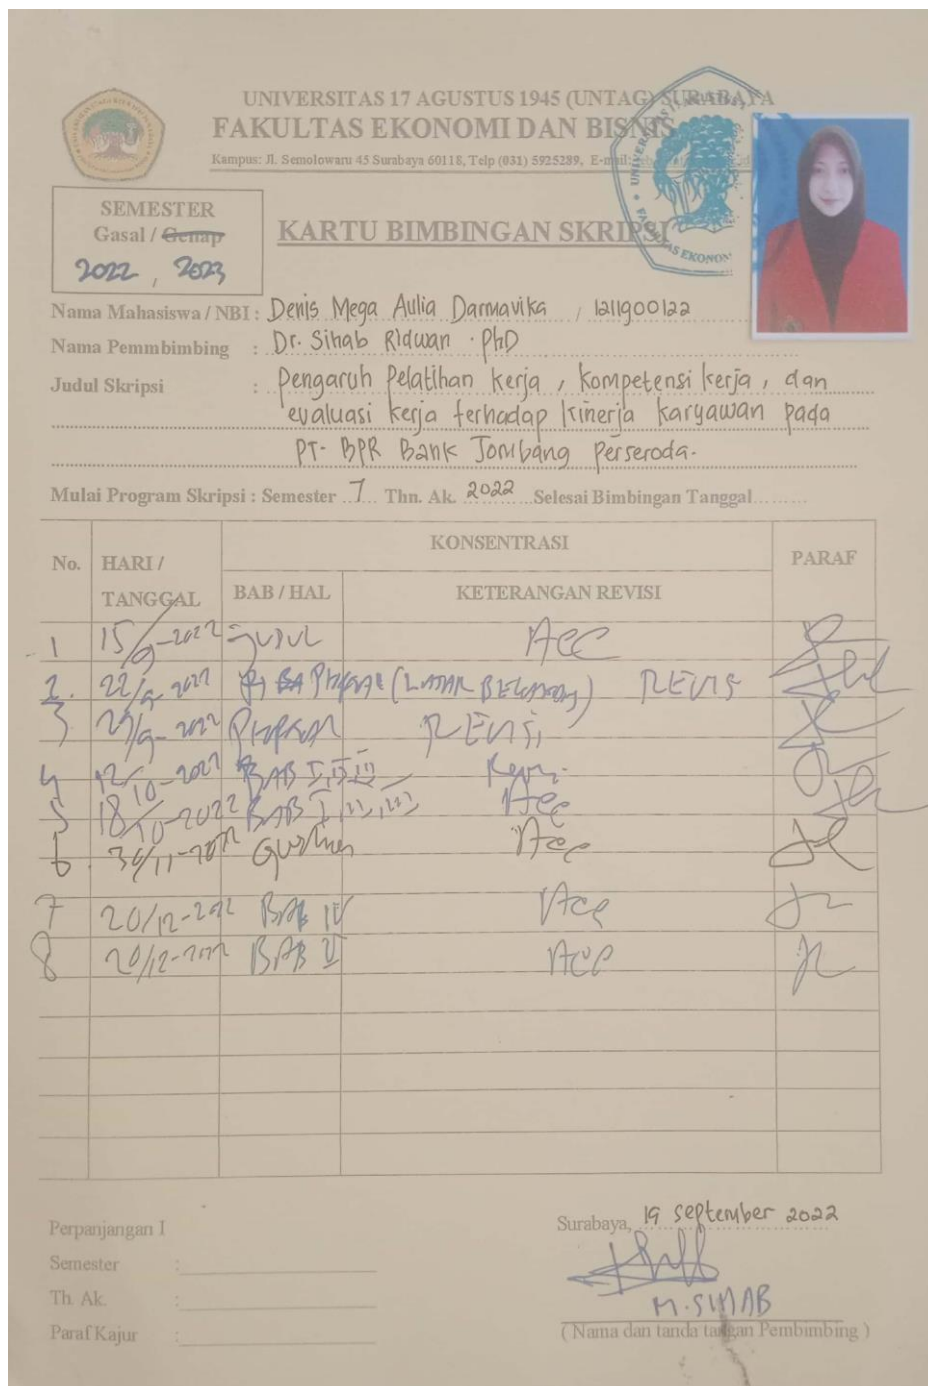 UNIVERSITAS 17 AGUSTUS 1945 (UNTAG) SURABAYA
FAKULTAS EKONOMI DAN BISNIS
Kampus: Jl. Semolowaru 45 Surabaya 60118, Telp (031) 5925289, E-mail:
SEMESTER
Gasal / Genap
2022, 2023
KARTU BIMBINGAN SKRIPSI
Nama Mahasiswa / NBI : Denis Mega Aulia Darmavika / 1211900122
Nama Pemmbimbing : Dr. Sihab Ridwan . PhD
Judul Skripsi : Pengaruh Pelatihan kerja, kompetensi kerja, dan
evaluasi kerja terhadap kinerja karyawan pada
PT. BPR Bank Jombang Perseroda.
Mulai Program Skripsi : Semester 7 Thn. Ak. 2022 Selesai Bimbingan Tanggal
No. HARI / TANGGAL KONSENTRASI PARAF
BAB / HAL KETERANGAN REVISI
1 15/9-2022 JUDUL Acc
2. 22/9-2022 (LATAR BELAKANG) REVISI
3 29/9-2022 REVISI
4 12/10-2022 BAB I, II, III Revisi
5 18/10-2022 BAB I, II, III Acc
6. 30/11-2022 Acc
7 20/12-2022 BAB IV Acc
8 20/12-2022 BAB V Acc
Perpanjangan I
Semester :
Th. Ak. :
Paraf Kajur :
Surabaya, 19 september 2022
M. SIHAB
( Nama dan tanda tangan Pembimbing )